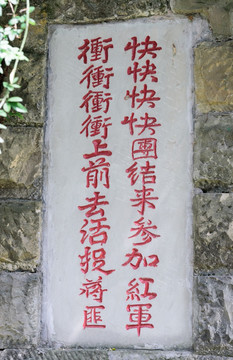 快快快快團结来参加紅軍
衝衝衝衝上前去活捉蒋匪